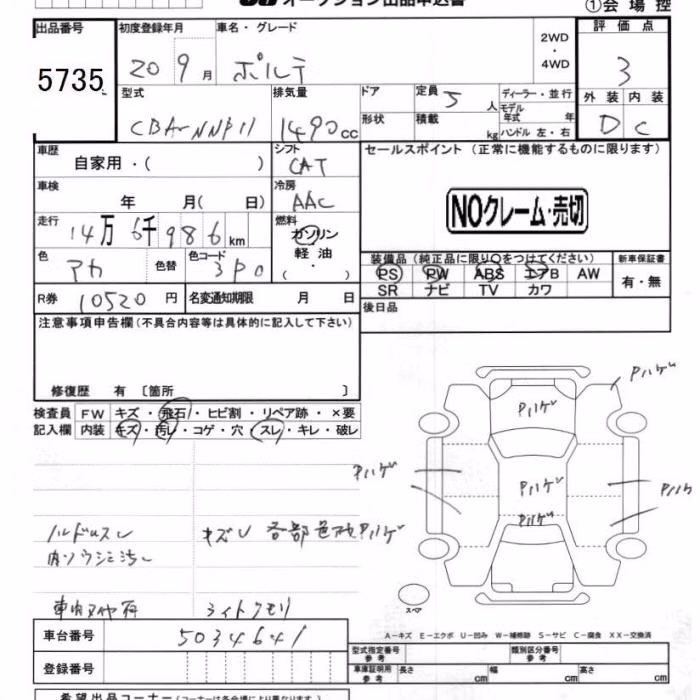 オークション出品申込書
①会場控
出品番号
5735
初度登録年月
20 9月
車名・グレード
ポルテ
2WD
・
4WD
評価点
3
外装 内装
D C
型式
CBA-NNP11
排気量
1490cc
ドア
形状
定員 5人
積載 kg
ディーラー・並行
モデル年式 年
ハンドル 左・右
車歴
自家用・( )
シフト
CAT
セールスポイント (正常に機能するものに限ります)
NOクレーム・売切
車検
年 月(日)
冷房
AAC
走行
14万6千986km
燃料
ガソリン
軽油
( ・ )
色
アカ
色替
色コード
3P0
装備品 (純正品に限り○をつけてください)
PS PW ABS エアB AW
SR ナビ TV カワ
新車保証書
有・無
R券 10520円
名変通知期限 月 日
後日品
注意事項申告欄 (不具合内容等は具体的に記入して下さい)
修復歴 有 〔箇所 〕
検査員
記入欄
FW キズ・飛石・ヒビ割・リペア跡・×要
内装 キズ・汚レ・コゲ・穴・スレ・キレ・破レ
Pハゲ
Pハゲ
Pハゲ
Pハゲ
Pハゲ
Pハゲ
ハンドルスレ
キズU 各部色アセPハゲ
内ソウシミ汚レ
ライトクモリ
スペア
A-キズ E-エクボ U-凹み W-補修跡 S-サビ C-腐食 XX-交換済
車台番号 5034641
登録番号
型式指定番号
参考
類別区分番号
参考
車庫証明用
参考
長さ cm 幅 cm 高さ cm
希望出品コーナー (コーナーは各会場により異なります)